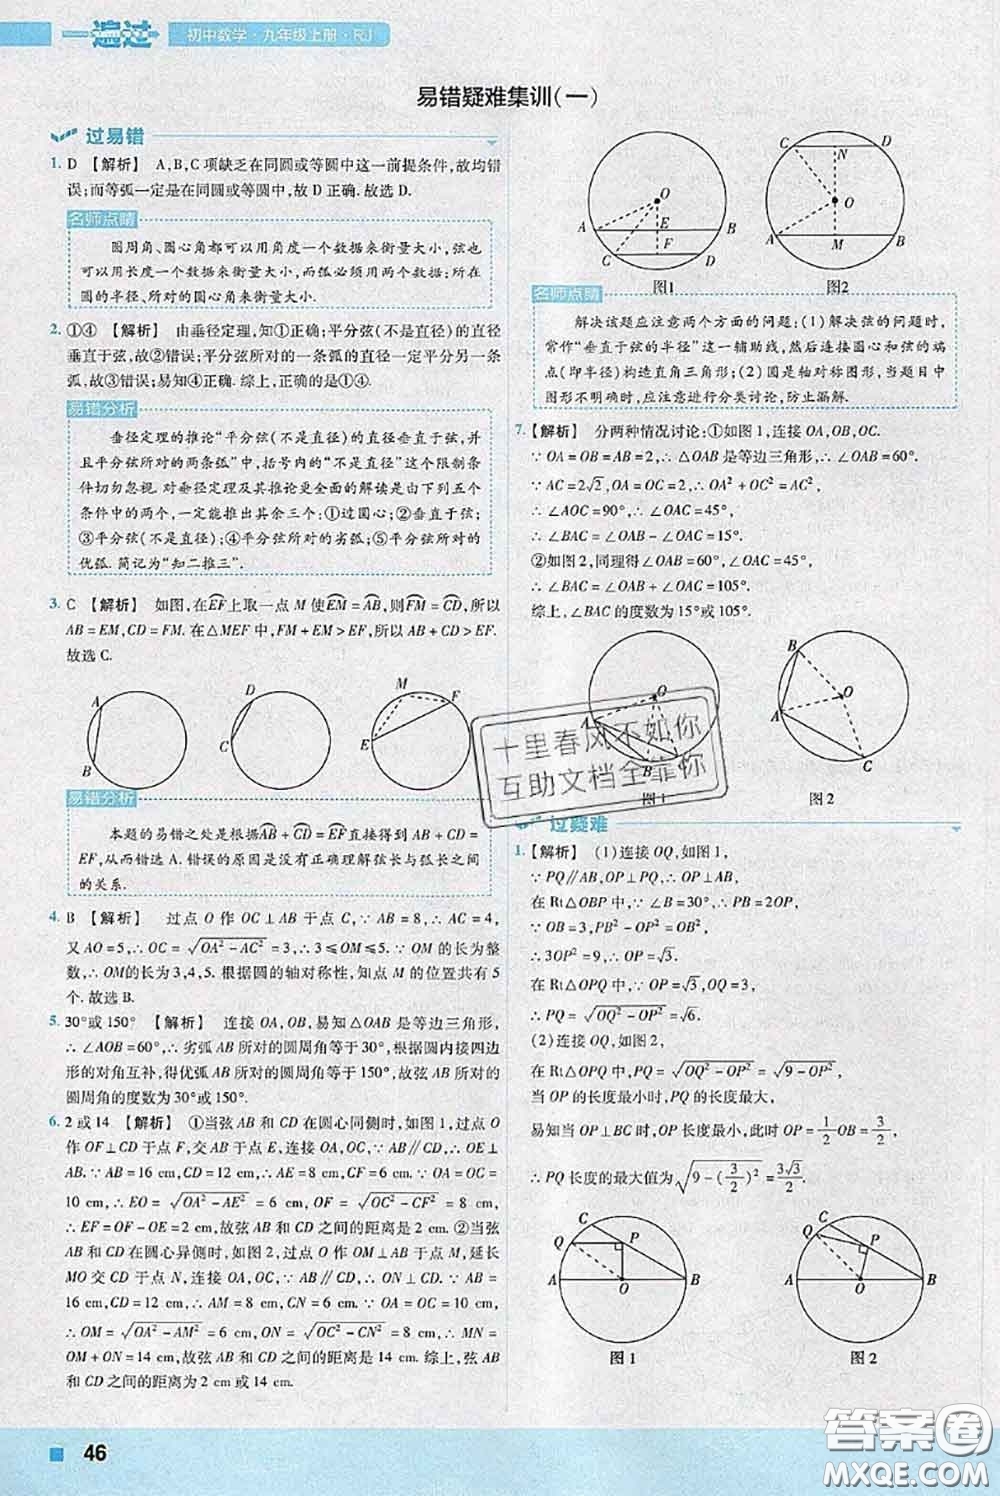 一遍过
初中数学·九年级上册·RJ
易错疑难集训(一)
过易错
1. D 【解析】 A,B,C项缺乏在同圆或等圆中这一前提条件,故均错
误;而等弧一定是在同圆或等圆中,故D正确.故选D.
名师点睛
圆周角、圆心角都可以用角度一个数据来衡量大小,弦也
可以用长度一个数据来衡量大小,而弧必须用两个数据:所在
圆的半径、所对的圆心角来衡量大小.
2. ①④ 【解析】 由垂径定理,知①正确;平分弦(不是直径)的直径
垂直于弦,故②错误;平分弦所对的一条弧的直径一定平分另一条
弧,故③错误;易知④正确.综上,正确的是①④.
易错分析
垂径定理的推论“平分弦(不是直径)的直径垂直于弦,并
且平分弦所对的两条弧”中,括号内的“不是直径”这个限制条
件切勿忽视.对垂径定理及其推论更全面的解读是由下列五个
条件中的两个,一定能推出其余三个:①过圆心;②垂直于弦;
③平分弦(不是直径);④平分弦所对的劣弧;⑤平分弦所对的
优弧.简记为“知二推三”.
3. C 【解析】 如图,在EF上取一点M使EM=AB,则FM=CD,所以
AB=EM,CD=FM.在△MEF中,FM+EM>EF,所以AB+CD>EF.
故选C.
A
B
D
C
M
F
E
易错分析
本题的易错之处是根据AB+CD=EF直接得到AB+CD=
EF,从而错选A.错误的原因是没有正确理解弦长与弧长之间
的关系.
4. B 【解析】 过点O作OC⊥AB于点C,∵AB=8,∴AC=4,
又AO=5,∴OC=√(OA²-AC²)=3,∴3≤OM≤5.∵OM的长为整
数,∴OM的长为3,4,5.根据圆的轴对称性,知点M的位置共有5
个.故选B.
5. 30°或150° 【解析】 连接OA,OB,易知△OAB是等边三角形,
∴∠AOB=60°,∴劣弧AB所对的圆周角等于30°,根据圆内接四边
形的对角互补,得优弧AB所对的圆周角等于150°,故弦AB所对
的圆周角的度数为30°或150°.
6. 2或14 【解析】 ①当弦AB和CD在圆心同侧时,如图1,过点O
作OF⊥CD于点F,交AB于点E,连接OA,OC,∴OE⊥AB.∵AB=
16 cm,CD=12 cm,∴AE=8 cm,CF=6 cm.∵OA=OC=
10 cm,∴EO=√(OA²-AE²)=6 cm,OF=√(OC²-CF²)=8 cm,
∴EF=OF-OE=2 cm,故弦AB和CD之间的距离是2 cm.②当弦
AB和CD在圆心异侧时,如图2,过点O作OM⊥AB于点M,延长
MO交CD于点N,连接OA,OC,∵AB∥CD,∴ON⊥CD.∵AB=
16 cm,CD=12 cm,∴AM=8 cm,CN=6 cm.∵OA=OC=10 cm,
∴OM=√(OA²-AM²)=6 cm,ON=√(OC²-CN²)=8 cm,∴MN=
OM+ON=14 cm,故弦AB和CD之间的距离是14 cm.综上,弦
AB和CD之间的距离为2 cm或14 cm.
O
A
E
B
C
F
D
图1
C
N
D
O
A
M
B
图2
名师点睛
解决该题应注意两个方面的问题:(1)解决弦的问题时,
常作“垂直于弦的半径”这一辅助线,然后连接圆心和弦的端
点(即半径)构造直角三角形;(2)圆是轴对称图形,当题目中
图形不明确时,应注意进行分类讨论,防止漏解.
7. 【解析】 分两种情况讨论:①如图1,连接OA,OB,OC.
∵OA=OB=AB=2,∴△OAB是等边三角形,∴∠OAB=60°.
∵AC=2√2,OA=OC=2,∴OA²+OC²=AC²,
∴∠AOC=90°,∴∠OAC=45°,
∴∠BAC=∠OAB-∠OAC=15°.
②如图2,同理得∠OAB=60°,∠OAC=45°,
∴∠BAC=∠OAB+∠OAC=105°.
综上,∠BAC的度数为15°或105°.
O
A
B
C
图1
B
O
A
C
图2
十里春风不如你
互助文档全靠你
过疑难
1. 【解析】 (1)连接OQ,如图1,
∵PQ∥AB,OP⊥PQ,∴OP⊥AB,
在Rt△OBP中,∵∠B=30°,∴PB=2OP.
∵OB=3,PB²-OP²=OB²,
∴3OP²=9,∴OP=√3.
在Rt△OPQ中,∵OP=√3,OQ=3,
∴PQ=√(OQ²-OP²)=√6.
(2)连接OQ,如图2,
在Rt△OPQ中,PQ=√(OQ²-OP²)=√(9-OP²),
当OP的长度最小时,PQ的长度最大,
易知当OP⊥BC时,OP长度最小,此时OP=1/2OB=3/2,
∴PQ长度的最大值为√(9-(3/2)²)=3√3/2.
C
Q
P
A
O
B
图1
C
Q
P
A
O
B
图2
46
答案圈
MXQE.COM